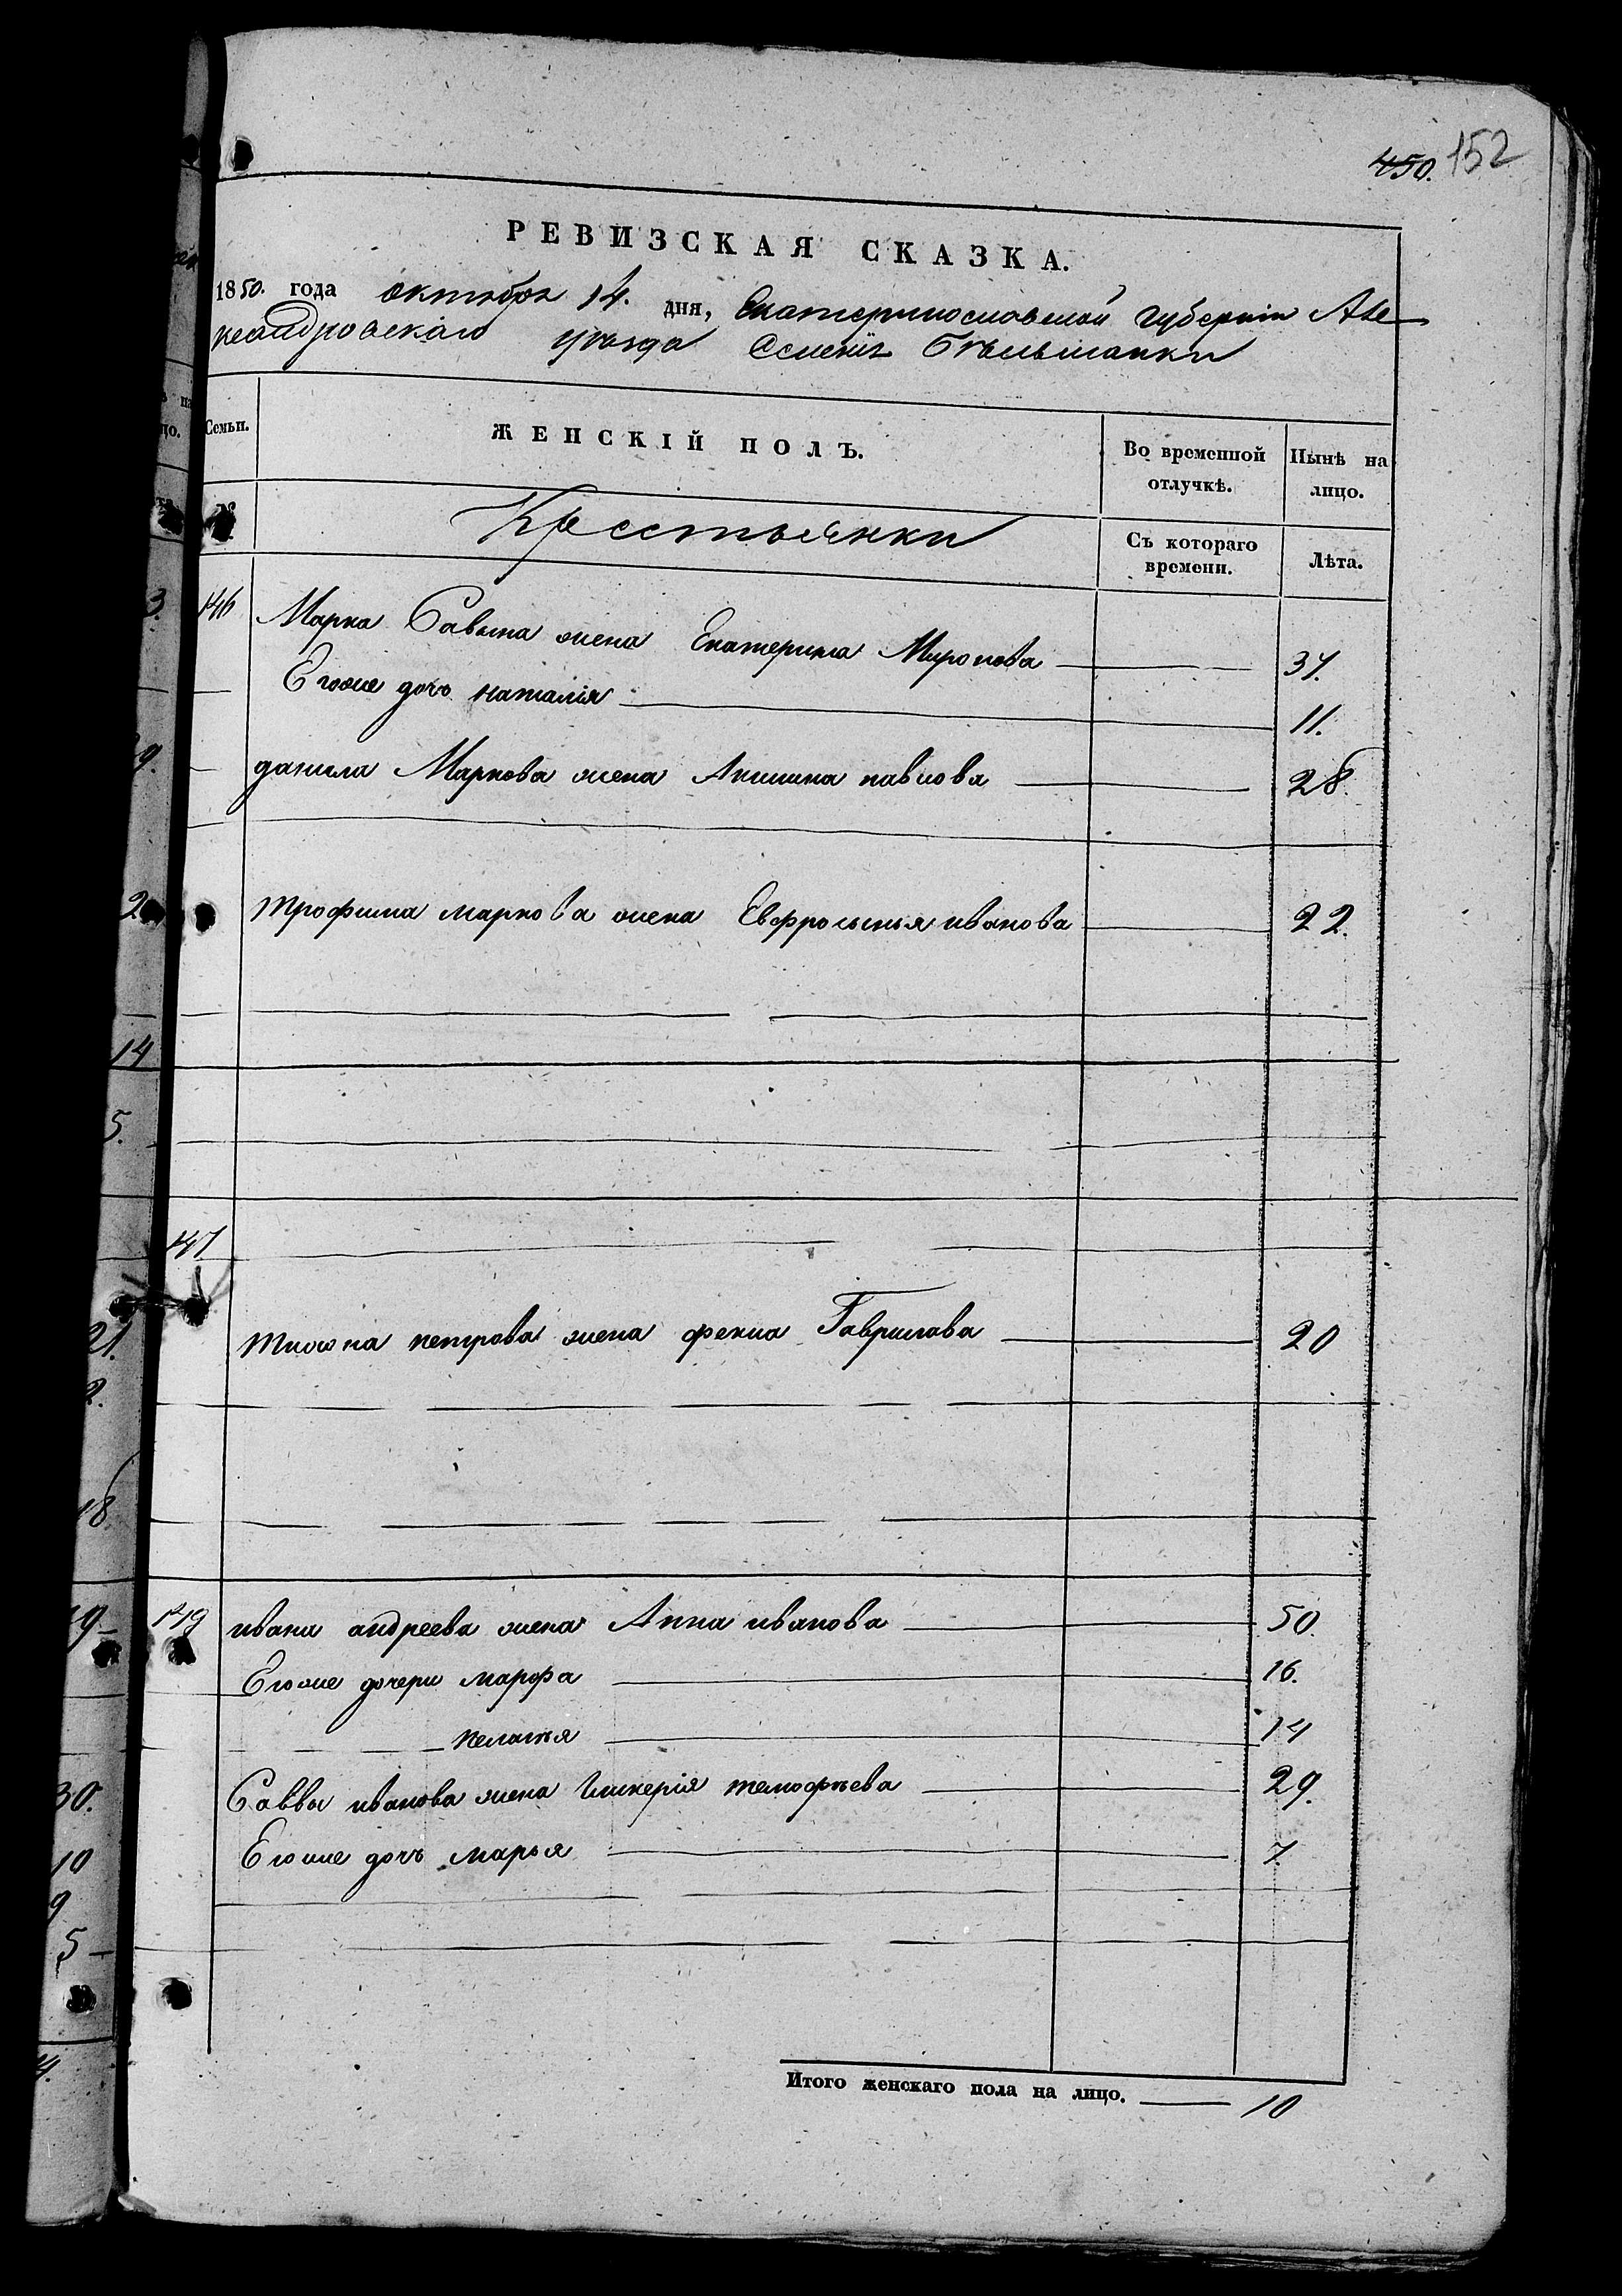 450. 152
РЕВИЗСКАЯ СКАЗКА.
1850. года октября 14. дня, Екатеринославской губерніи Але-
ксандровскаго уѣзда Селенія Бѣльманки
Семьи. ЖЕНСКІЙ ПОЛЪ. Во временной отлучкѣ. Нынѣ на лицо.
№ Крестьянки Съ котораго времени. Лѣта.
146 Марка Савина жена Екатерина Миронова 37.
Егоже дочь наталія 11.
данила Маркова жена Акилина павлова 28
трофима маркова жена Евфросинья иванова 22.
147
тихона петрова жена фекла Гаврилова 20
149 ивана андреева жена Анна иванова 50
Егоже дочери марфа 16.
пелагия 14
Саввы иванова жена Гликерія темофѣева 29.
Егоже дочь марья 7
Итого женскаго пола на лицо. 10